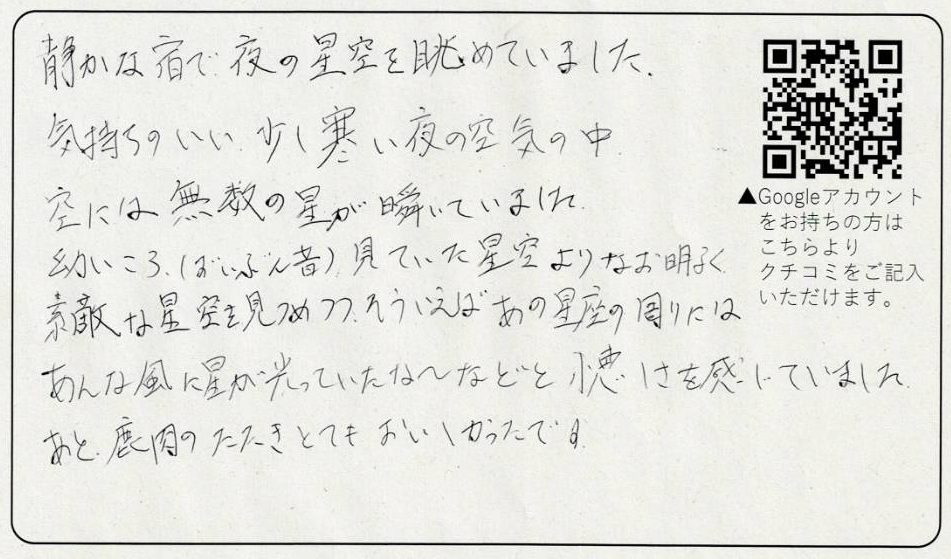 静かな宿で、夜の星空を眺めていました。
気持ちのいい、少し寒い夜の空気の中、
空には無数の星が瞬いていました。
幼いころ、(ずいぶん昔)見ていた星空よりなお明るく、
素敵な星空を見つめつつ、そういえばあの星座の周りには
あんな風に星が光っていたな〜などと しさを感じていました。
あと、鹿肉のたたきとてもおいしかったです。
▲Googleアカウント
をお持ちの方は
こちらより
クチコミをご記入
いただけます。